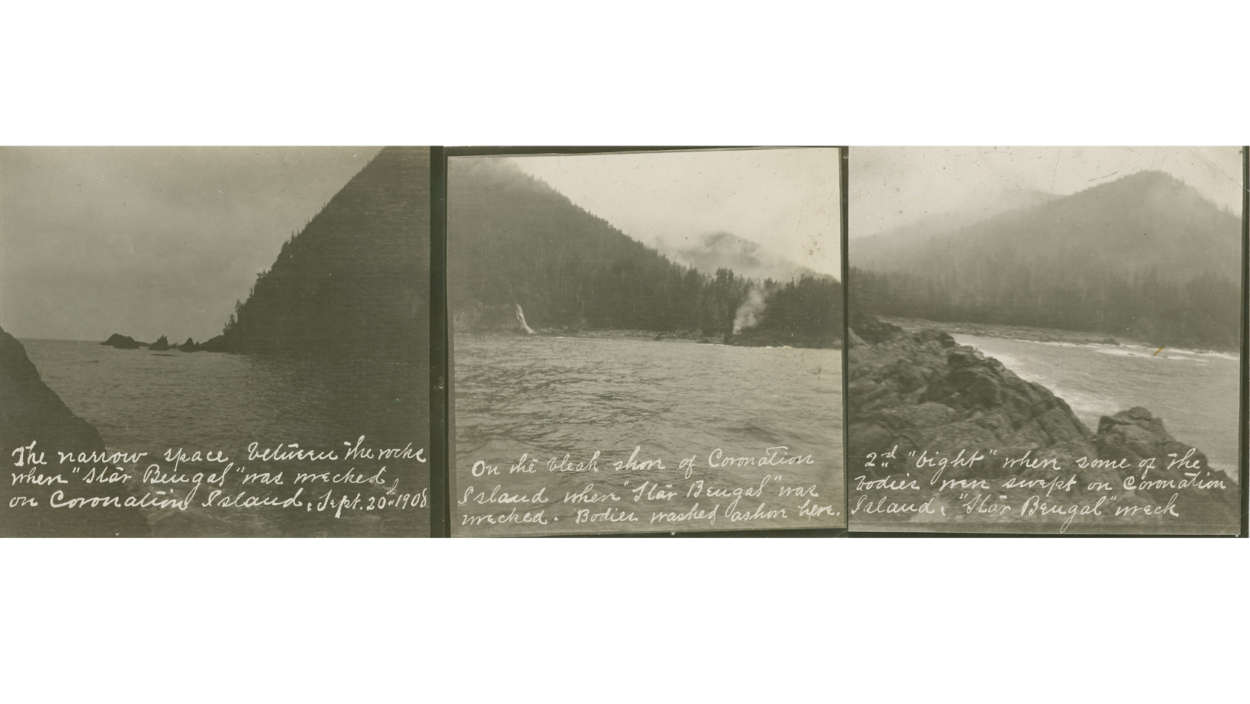 The narrow space between the rocks
where "Star Bengal" was wrecked
on Coronation Island, Sept. 20th 1908
On the bleak shore of Coronation
Island where "Star Bengal" was
wrecked. Bodies washed ashore here.
2nd "bight" where some of the
bodies were swept on Coronation
Island, "Star Bengal" wreck